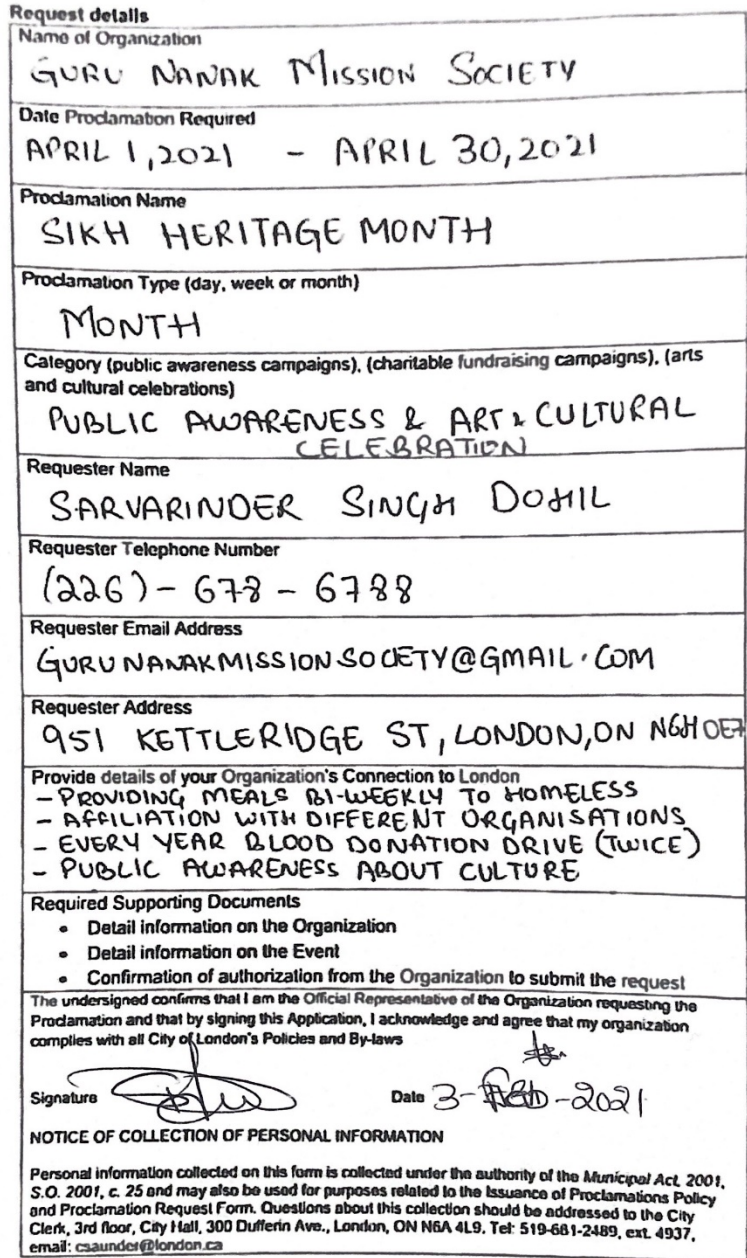 Request details
Name of Organization
GURU NANAK MISSION SOCIETY
Date Proclamation Required
APRIL 1, 2021 - APRIL 30, 2021
Proclamation Name
SIKH HERITAGE MONTH
Proclamation Type (day, week or month)
MONTH
Category (public awareness campaigns), (charitable fundraising campaigns), (arts
and cultural celebrations)
PUBLIC AWARENESS & ART & CULTURAL
CELEBRATION
Requester Name
SARVARINDER SINGH DOHIL
Requester Telephone Number
(226) - 678 - 6788
Requester Email Address
GURUNANAKMISSIONSOCIETY@GMAIL.COM
Requester Address
951 KETTLERIDGE ST, LONDON, ON N6H 0E7
Provide details of your Organization's Connection to London
- PROVIDING MEALS BI-WEEKLY TO HOMELESS
- AFFILIATION WITH DIFFERENT ORGANISATIONS
- EVERY YEAR BLOOD DONATION DRIVE (TWICE)
- PUBLIC AWARENESS ABOUT CULTURE
Required Supporting Documents
• Detail information on the Organization
• Detail information on the Event
• Confirmation of authorization from the Organization to submit the request
The undersigned confirms that I am the Official Representative of the Organization requesting the
Proclamation and that by signing this Application, I acknowledge and agree that my organization
complies with all City of London's Policies and By-laws
Signature Date 3-Feb-2021
NOTICE OF COLLECTION OF PERSONAL INFORMATION
Personal information collected on this form is collected under the authority of the Municipal Act, 2001,
S.O. 2001, c. 25 and may also be used for purposes related to the Issuance of Proclamations Policy
and Proclamation Request Form. Questions about this collection should be addressed to the City
Clerk, 3rd floor, City Hall, 300 Dufferin Ave., London, ON N6A 4L9. Tel: 519-661-2489, ext. 4937,
email: csaunder@london.ca